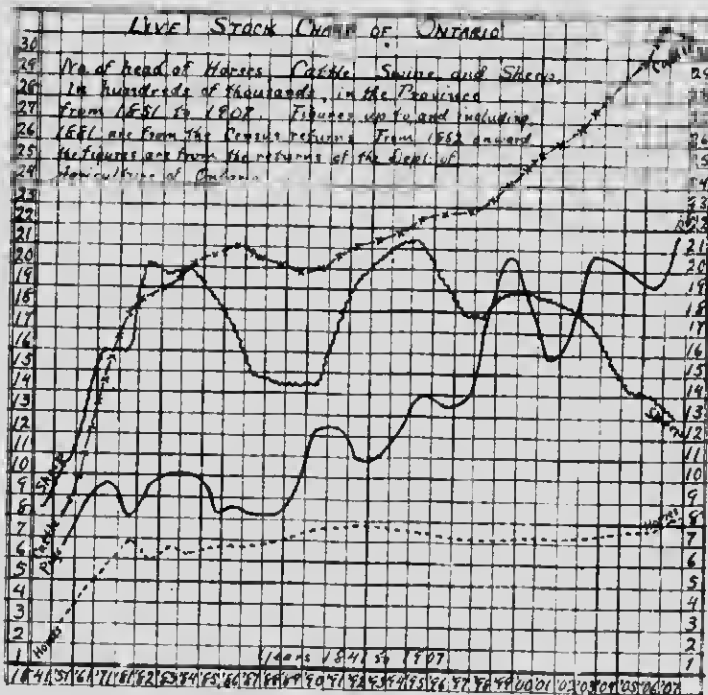 LIVE STOCK CHART OF ONTARIO
No. of head of Horses, Cattle, Swine and Sheep,
in hundreds of thousands, in the Province
from 1851 to 1907. Figures up to and including
1881 are from the Census returns. From 1882 onward
the figures are from the returns of the Dept. of
Agriculture of Ontario
30
29
28
27
26
25
24
23
22
21
20
19
18
17
16
15
14
13
12
11
10
9
8
7
6
5
4
3
2
1
Cattle
29
28
27
26
25
24
23
22
21
20
19
18
17
16
15
14
13
12
11
10
9
8
7
6
5
4
3
2
1
Sheep
Cattle
Pigs
Horses
Horses
Years 1841 to 1907
1841 '51 '61 '71 '81 '82 '83 '84 '85 '86 '87 '88 '89 '90 '91 '92 '93 '94 '95 '96 '97 '98 '99 '00 '01 '02 '03 '04 '05 '06 '07